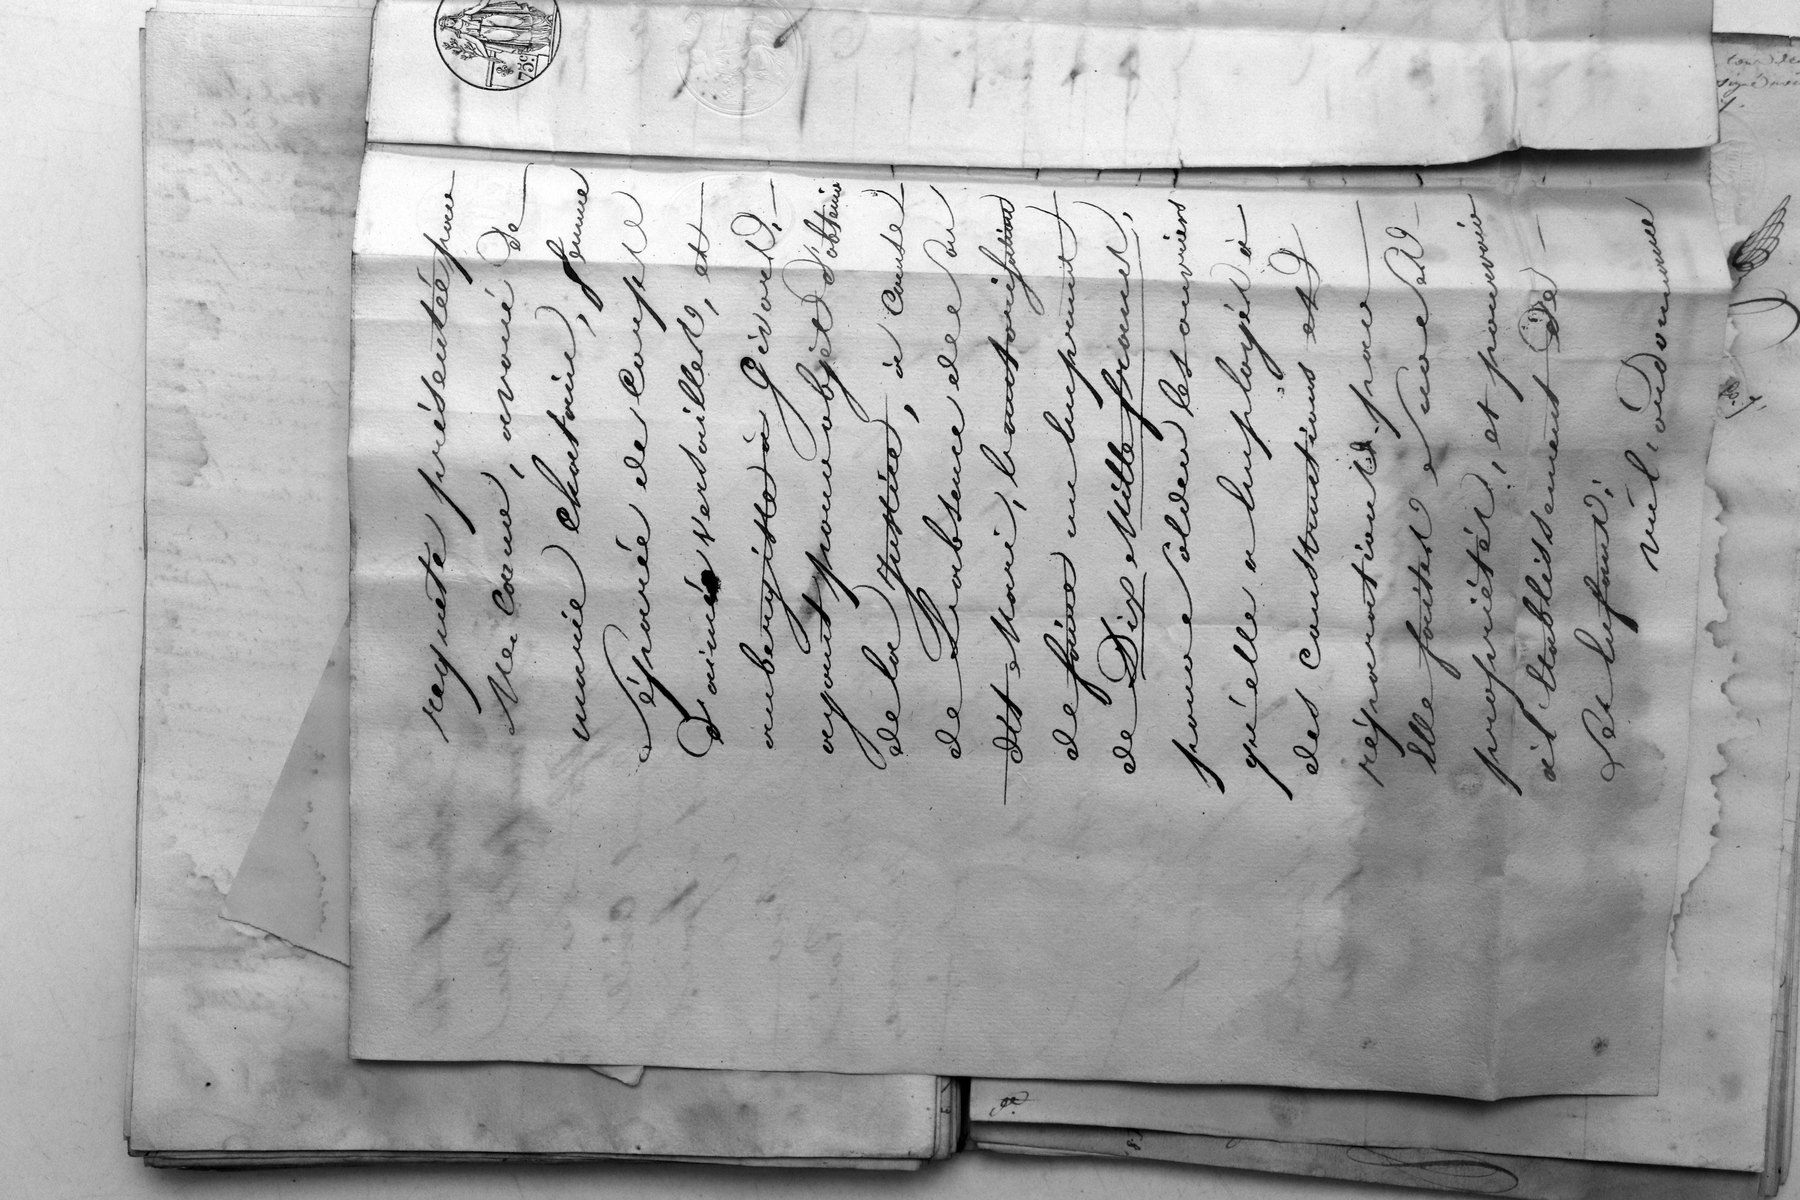 requete présentée par
Me Caune, avoué de
marie Chataire, femme
Séparée de Corps de
Daimé Versailles, et
aubergiste à Givors,
ayant pour objet d'obtenir
de la Justice, à cause
de L'absence de son
dit Mari, l'autorisation
de faire un emprunt
de Dix Mille francs,
pour solder les ouvriers
qu'elle a employés à
des constructions et
réparations par
Elle faites à ses
propriétés, et pourvoir
à l'Etablissement de
Ses Enfans;
vu l'ordonnance
75c.